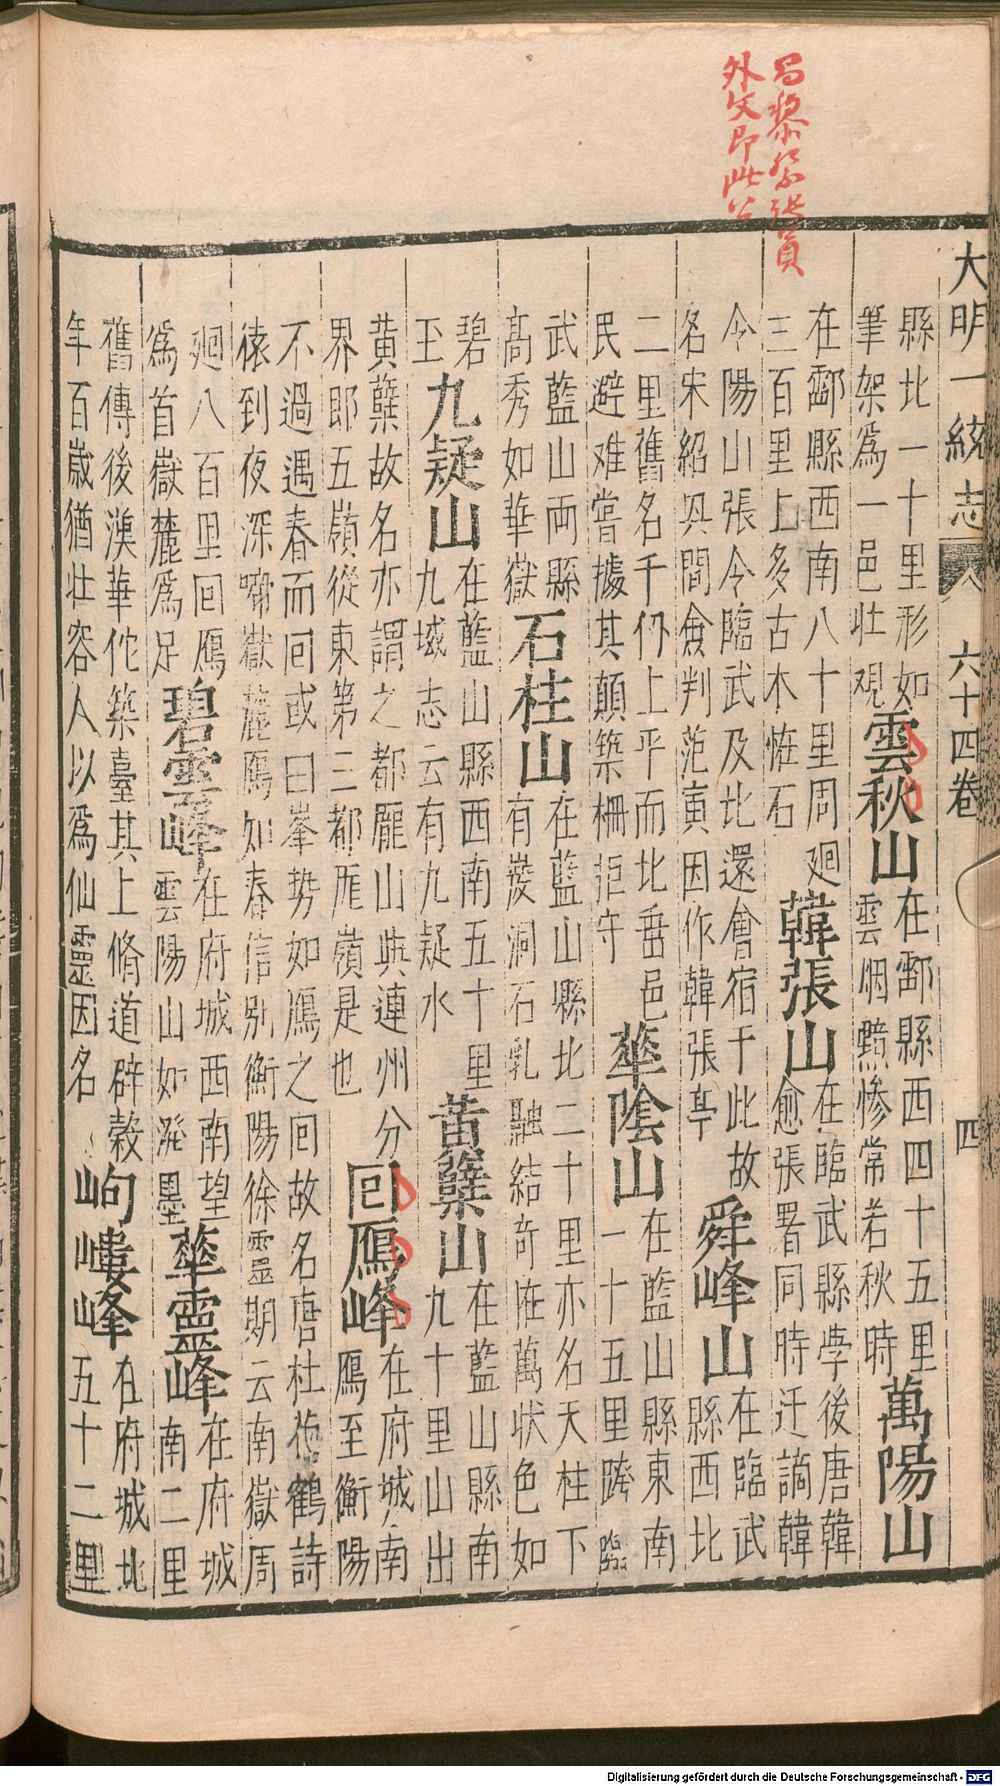 昌黎祭張員
外文即此公
大明一統志 六十四卷 四
縣北一十里形如
筆架為一邑壯觀
雲秋山
在酃縣西四十五里
雲烟黯慘常若秋時
萬陽山
在酃縣西南八十里周廻
三百里上多古木恠石
韓張山
在臨武縣學後唐韓
愈張署同時迁謫韓
令陽山張令臨武及北還會宿于此故
名宋紹興間僉判范寅因作韓張亭
舜峰山
在臨武
縣西北
二里舊名千仞上平而北垂邑
民避难嘗據其顛築柵拒守
華陰山
在藍山縣東南
一十五里跨臨
武藍山両縣
高秀如華嶽
石柱山
在藍山縣北二十里亦名天柱下
有菱洞石乳融結奇恠萬状色如
碧
玉
九疑山
在藍山縣西南五十里
九域志云有九疑水
黃蘗山
在藍山縣南
九十里山出
黃蘗故名亦謂之都龐山與連州分
界即五嶺從東第三都龐嶺是也
回鴈峰
在府城南
鴈至衡陽
不過遇春而回或曰峯勢如鴈之回故名唐杜荀鶴詩
猿到夜深啼嶽麓鴈如春信別衡陽徐靈期云南嶽周
廻八百里回鴈
為首嶽麓為足
碧雲峰
在府城西南望
雲陽山如潑墨
華靈峰
在府城
南二里
舊傳後漢華佗築臺其上脩道辟穀
年百歲猶壯容人以為仙靈因名
岣嶁峰
在府城北
五十二里
Digitalisierung gefördert durch die Deutsche Forschungsgemeinschaft - DFG